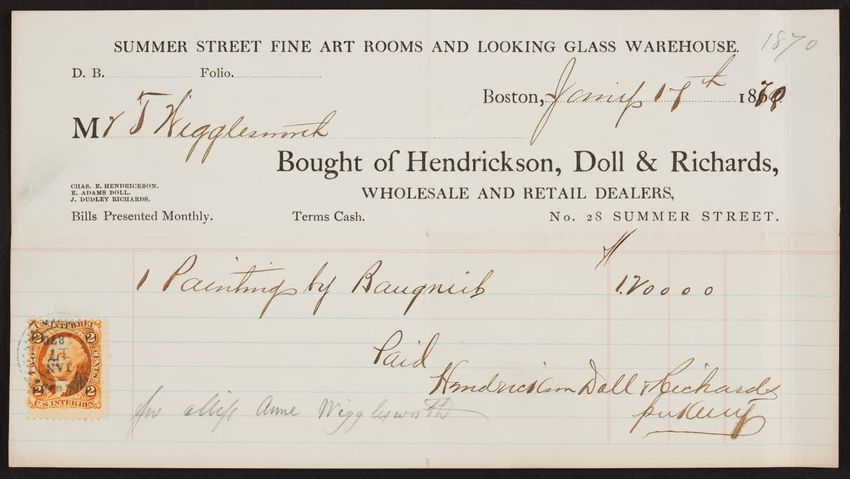 SUMMER STREET FINE ART ROOMS AND LOOKING GLASS WAREHOUSE. 1870
D. B. Folio.
Boston, Jany 17th 1870
Mr T Wigglesworth
Bought of Hendrickson, Doll & Richards,
CHAS. E. HENDRICKSON.
E. ADAMS DOLL.
J. DUDLEY RICHARDS.
WHOLESALE AND RETAIL DEALERS,
Bills Presented Monthly. Terms Cash. No. 28 SUMMER STREET.
$
1 Painting by Baugniet 1200 00
Paid
Hendrickson Doll & Richards
for Miss Anne Wigglesworth
U.S. INTER. REV.
2 2
JAN
17
1870
2 2
U.S. INTER. REV.